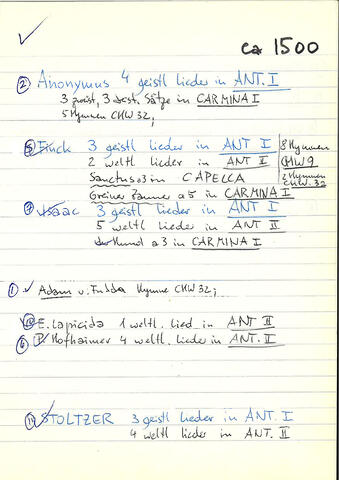 ca 1500
② Anonymus 4 geistl lieder in ANT. I
3 geist, 3 Sätze in CARMINA I
5 Hymnen CHW 32;
Finck 3 geistl lieder in ANT I 8 Hymnen
2 weltl lieder in ANT II CHW 9
Sanctus a3 in CAPELLA 2 Hymnen
Greiner Zanner a 5 in CARMINA I CHW. 32
Isaac 3 geistl lieder in ANT I
5 weltl lieder in ANT II
der Hund a 3 in CARMINA I
① Adam v. Fulda Hymne CHW 32;
E. Lapicida 1 weltl. Lied in ANT II
P. Hofhaimer 4 weltl. lieder in ANT. II
STOLTZER 3 geistl lieder in ANT. I
4 weltl lieder in ANT. II